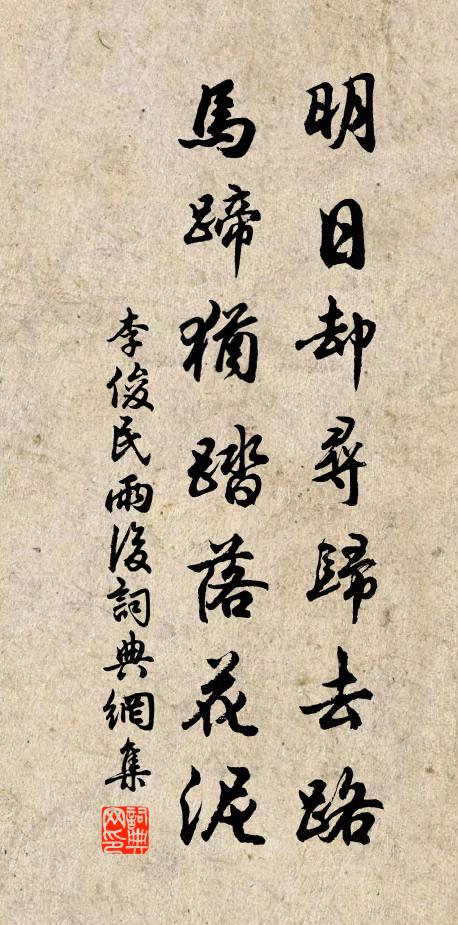 明日却尋歸去路
馬蹄猶踏落花泥
李俊民雨後詞典網集
詞典网印